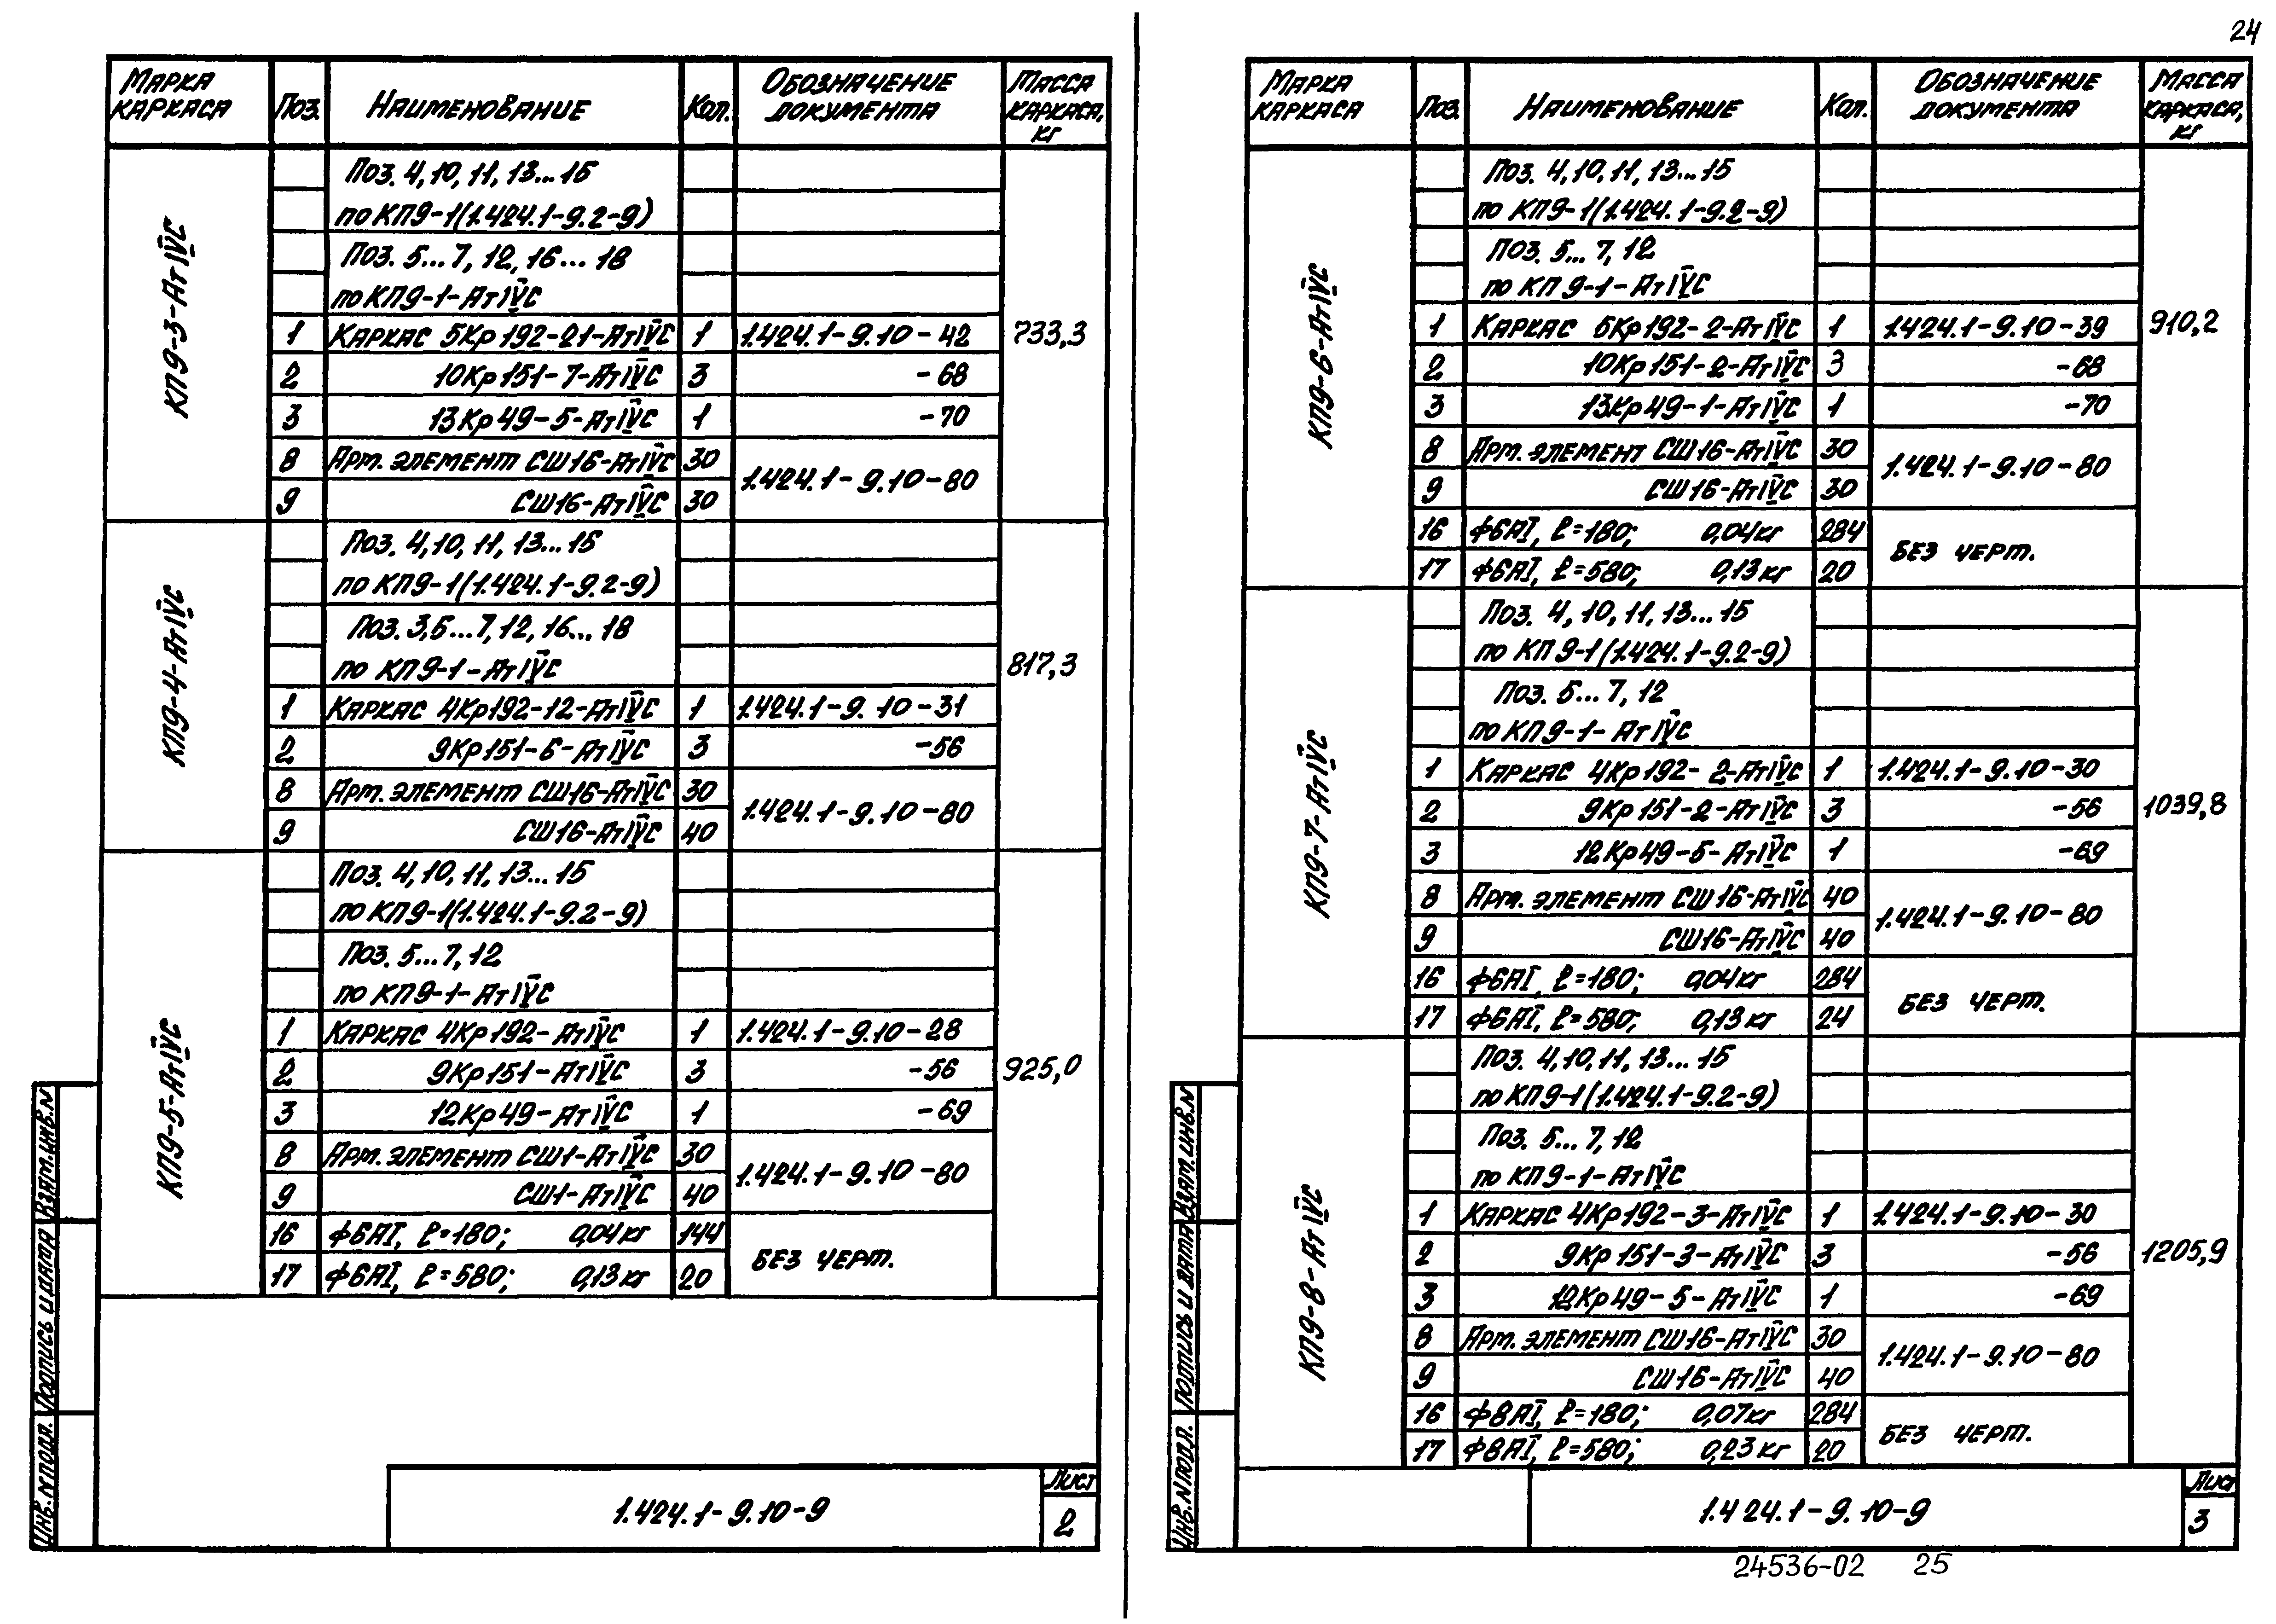 24
Марка каркаса | Поз. | Наименование | Кол. | Обозначение документа | Масса каркаса, кг
КП9-3-АтIVС
733,3
Поз. 4, 10, 11, 13...15
по КП9-1(1.424.1-9.2-9)
Поз. 5...7, 12, 16...18
по КП9-1-АтIVС
1 | Каркас 5Кр192-21-АтIVС | 1 | 1.424.1-9.10-42
2 | 10Кр151-7-АтIVС | 3 | -68
3 | 13Кр49-5-АтIVС | 1 | -70
8 | Арт. элемент СШ16-АтIVС | 30 | 1.424.1-9.10-80
9 | СШ16-АтIVС | 30
КП9-4-АтIVС
817,3
Поз. 4, 10, 11, 13...15
по КП9-1(1.424.1-9.2-9)
Поз. 3,5...7, 12, 16...18
по КП9-1-АтIVС
1 | Каркас 4Кр192-12-АтIVС | 1 | 1.424.1-9.10-31
2 | 9Кр151-6-АтIVС | 3 | -56
8 | Арт. элемент СШ16-АтIVС | 30 | 1.424.1-9.10-80
9 | СШ16-АтIVС | 40
КП9-5-АтIVС
925,0
Поз. 4, 10, 11, 13...15
по КП9-1(1.424.1-9.2-9)
Поз. 5...7, 12
по КП9-1-АтIVС
1 | Каркас 4Кр192-АтIVС | 1 | 1.424.1-9.10-28
2 | 9Кр151-АтIVС | 3 | -56
3 | 12Кр49-АтIVС | 1 | -69
8 | Арт. элемент СШ1-АтIVС | 30 | 1.424.1-9.10-80
9 | СШ1-АтIVС | 40
16 | ф6АI, ℓ=180; 0,04кг | 144 | Без черт.
17 | ф6АI, ℓ=580; 0,13кг | 20
Инв. N подл. | Подпись и дата | Взам. инв. N
1.424.1-9.10-9
Лист
2
Марка каркаса | Поз. | Наименование | Кол. | Обозначение документа | Масса каркаса, кг
КП9-6-АтIVС
910,2
Поз. 4, 10, 11, 13...15
по КП9-1(1.424.1-9.2-9)
Поз. 5...7, 12
по КП9-1-АтIVС
1 | Каркас 5Кр192-2-АтIVС | 1 | 1.424.1-9.10-39
2 | 10Кр151-2-АтIVС | 3 | -68
3 | 13Кр49-1-АтIVС | 1 | -70
8 | Арт. элемент СШ16-АтIVС | 30 | 1.424.1-9.10-80
9 | СШ16-АтIVС | 30
16 | ф6АI, ℓ=180; 0,04кг | 284 | Без черт.
17 | ф6АI, ℓ=580; 0,13кг | 20
КП9-7-АтIVС
1039,8
Поз. 4, 10, 11, 13...15
по КП9-1(1.424.1-9.2-9)
Поз. 5...7, 12
по КП9-1-АтIVС
1 | Каркас 4Кр192-2-АтIVС | 1 | 1.424.1-9.10-30
2 | 9Кр151-2-АтIVС | 3 | -56
3 | 12Кр49-5-АтIVС | 1 | -69
8 | Арт. элемент СШ16-АтIVС | 40 | 1.424.1-9.10-80
9 | СШ16-АтIVС | 40
16 | ф6АI, ℓ=180; 0,04кг | 284 | Без черт.
17 | ф6АI, ℓ=580; 0,13кг | 24
КП9-8-АтIVС
1205,9
Поз. 4, 10, 11, 13...15
по КП9-1(1.424.1-9.2-9)
Поз. 5...7, 12
по КП9-1-АтIVС
1 | Каркас 4Кр192-3-АтIVС | 1 | 1.424.1-9.10-30
2 | 9Кр151-3-АтIVС | 3 | -56
3 | 12Кр49-5-АтIVС | 1 | -69
8 | Арт. элемент СШ16-АтIVС | 30 | 1.424.1-9.10-80
9 | СШ16-АтIVС | 40
16 | ф8АI, ℓ=180; 0,07кг | 284 | Без черт.
17 | ф8АI, ℓ=580; 0,23кг | 20
Инв. N подл. | Подпись и дата | Взам. инв. N
1.424.1-9.10-9
Лист
3
24536-02 25